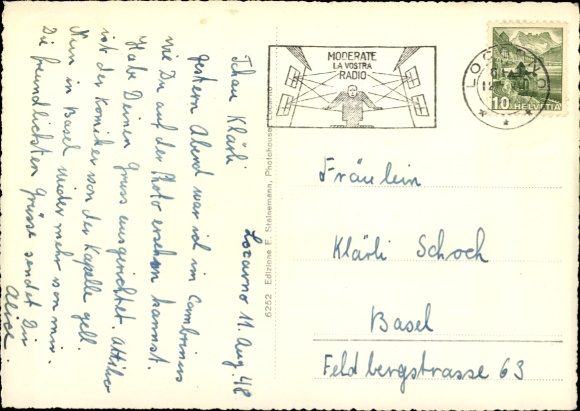 Locarno 11. Aug. 48
Tschau Klärli
gestern Abend war ich im Cambrinus
wie Du auf der Photo ersehen kannst.
Habe Deinen Gruss ausgerichtet. Attilio
ist der Komiker von der Kapelle gell.
Nun in Basel wieder mehr von mir.
Die freundlichsten Grüsse sendet Dir
Alice.
6252 Edizione E. Steinemann, Photohouse, Locarno
MODERATE
LA VOSTRA
RADIO
LOCARNO
10 HELVETIA
Fräulein
Klärli Schoch
Basel
Feldbergstrasse 63